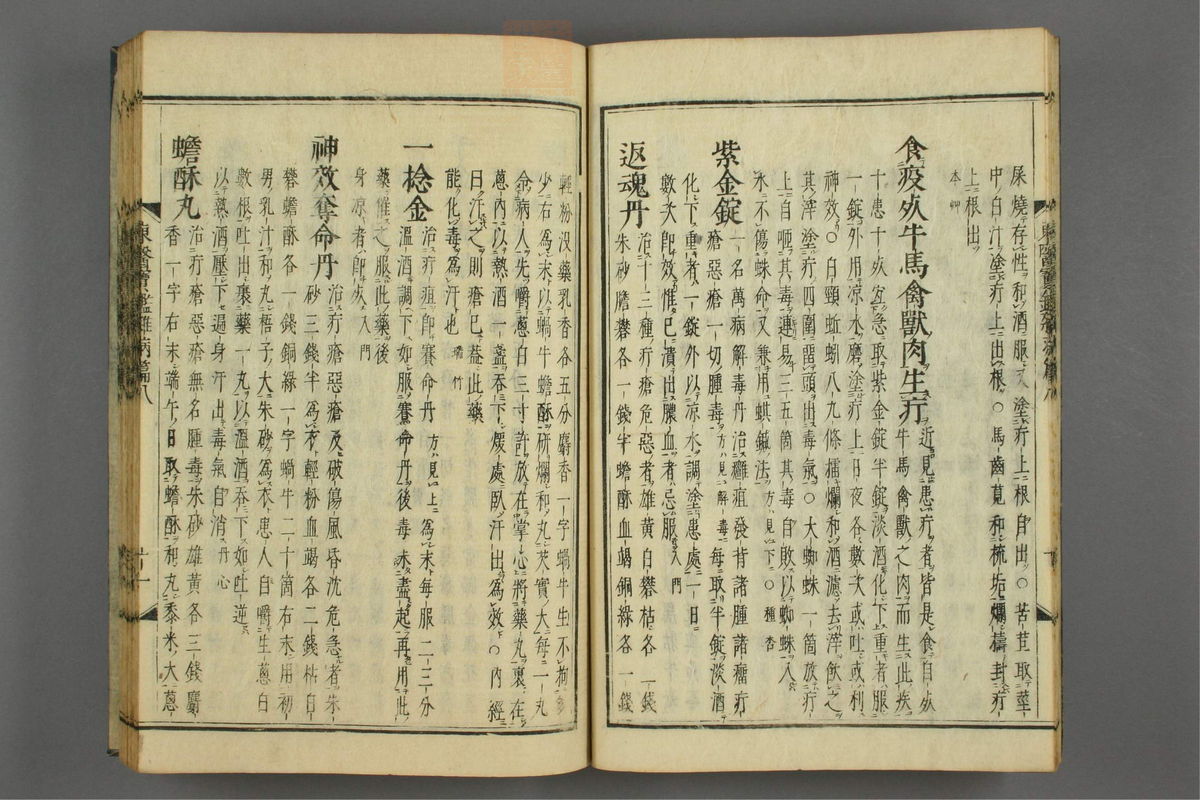 屎燒存性和酒服又塗疔上根自出○苦苣取莖
中白汁塗疔上出根○馬齒莧和梳垢爛搗封疔
上根出
本艸
食疫死牛馬禽獸肉生疔近見患疔者皆是食自死
牛馬禽獸之肉而生此疾
十患十死宜急取紫金錠半錠淡酒化下重者服
一錠外用凉水磨塗疔上日夜各數次或吐或利
神效○白頸蚯蚓八九條擂爛和酒濾去滓飮之
其滓塗疔四圍留頭出毒氣○大蜘蛛一箇放疔
上自咂其毒連易三五箇其毒自敗以蜘蛛入
水不傷蛛命又兼用蜞鍼法方見下○種杏
紫金錠一名萬病解毒丹治癰疽發背諸腫諸瘤疔
瘡惡瘡一切腫毒方見解毒每取半錠淡酒
化下重者一錠外以凉水調塗患處一日
數次卽效惟已潰出膿血者忌服入門
返魂丹治十三種疔瘡危惡者雄黃白礬枯各一錢
朱砂膽礬各一錢半蟾酥血竭銅綠各一錢
輕粉沒藥乳香各五分麝香一字蝸牛生不拘多
少右爲末以蝸牛蟾酥硏爛和丸芡實大每一丸
令病人先嚼葱白三寸許放在掌心將藥丸裹在
葱內以熱酒一盞呑下煖處臥汗出爲效○內經
曰汗之則瘡已蓋此藥
能化毒爲汗也 瑞竹
一捻金治疔疽卽賽命丹 方見上 爲末每服二三分
溫酒調下如服賽命丹後毒未盡起再用此
藥催之服此藥後
身凉者卽死入門
神效奪命丹治疔瘡惡瘡及破傷風昏沈危急者朱
砂三錢半爲衣輕粉血竭各二錢枯白
礬蟾酥各一錢銅綠一字蝸牛二十箇右末用初
男乳汁和丸梧子大朱砂爲衣患人自嚼生葱白
數根吐出裹藥一丸以溫酒呑下如吐逆
以熱酒壓下遍身汗出毒氣自消丹心
蟾酥丸治疔瘡惡瘡無名腫毒朱砂雄黃各三錢麝
香一字右末端午日取蟾酥和丸黍米大葱
東醫寶鑑雜病篇八